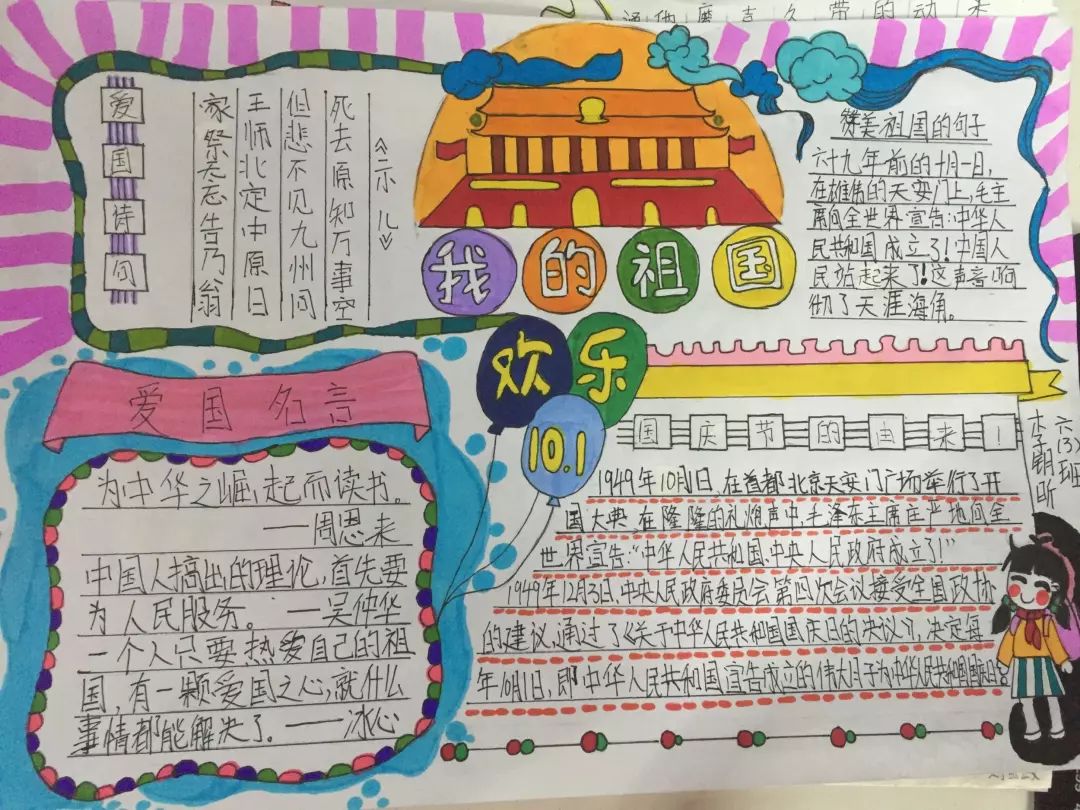 爱国诗句
《示儿》
死去原知万事空
但悲不见九州同
王师北定中原日
家祭无忘告乃翁
我的祖国
欢乐
10.1
赞美祖国的句子
六十九年前的十月一日,
在雄伟的天安门上,毛主
席向全世界宣告:中华人
民共和国成立了!中国人
民站起来了!这声音响
彻了天涯海角。
爱国名言
为中华之崛起而读书。
——周恩来
中国人搞出的理论,首先要
为人民服务。——吴仲华
一个人只要热爱自己的祖
国,有一颗爱国之心,就什么
事情都能解决了。——冰心
国庆节的由来!
1949年10月1日,在首都北京天安门广场举行了开
国大典,在隆隆的礼炮声中,毛泽东主席庄严地向全
世界宣告:“中华人民共和国中央人民政府成立了!”
1949年12月3日,中央人民政府委员会第四次会议接受全国政协
的建议,通过了《关于中华人民共和国国庆日的决议》,决定每
年10月1日,即中华人民共和国宣告成立的伟大日子,为中华人民共和国国庆日。
六(3)班